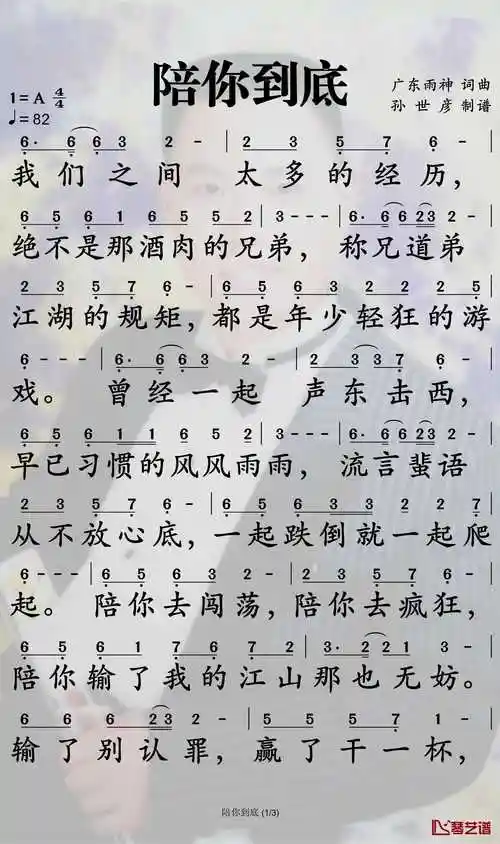 陪你到底
1=A 4/4
♩=82
广东雨神 词曲
孙世彦 制谱
6· 6 6 3 2 - | 2 3 5 7 6 - |
我们之间 太多的经历，
6 5 6 1 6 5 5 2 | 3 - - - | 6· 6 6 2 3 2 - |
绝不是那酒肉的兄弟，称兄道弟
2 3 5 7 6 - | 6 5 6 3 2 2 2 5 |
江湖的规矩，都是年少轻狂的游
6 - - - | 6· 6 6 3 2 - | 2 3 3 7 6 - |
戏。曾经一起 声东击西，
6 5 6 1 1 6 5 2 | 3 - - - | 6· 6 6 2 3 2 - |
早已习惯的风风雨雨，流言蜚语
2 3 5 7 6 - | 6 5 6 3 2 2 2 5 |
从不放心底，一起跌倒就一起爬
6 - - - | 6 5 6 3 2 - | 2 3 5 7 6 - |
起。陪你去闯荡，陪你去疯狂，
6 5 6 1 7 6 7 2 | 3· 2 2 2 3 - |
陪你输了我的江山那也无妨。
6 6 6 2 3 2 - | 2 5 5 5 7 6 - |
输了别认罪，赢了干一杯，
陪你到底 (1/3)
琴艺谱